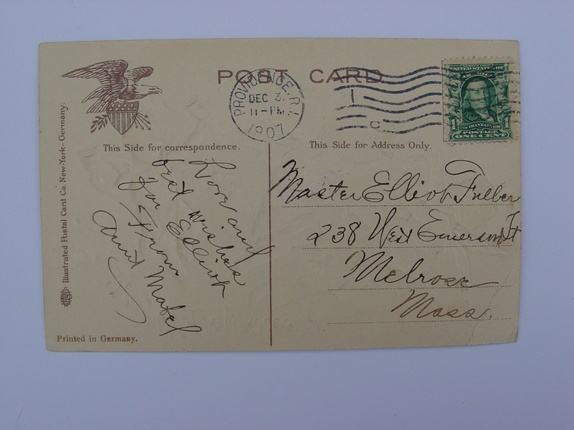 POST CARD
PROVIDENCE, R.I.
DEC 2
11-PM
1907
UNITED STATES OF
FRANKLIN
POSTAGE
ONE CENT
This Side for correspondence.
This Side for Address Only.
Love and
best wishes
for Elliot
From
Aunt Mabel
Master Elliot Fuller
238 West Emerson St
Melrose
Mass.
Illustrated Postal Card Co. New-York-Germany.
Printed in Germany.